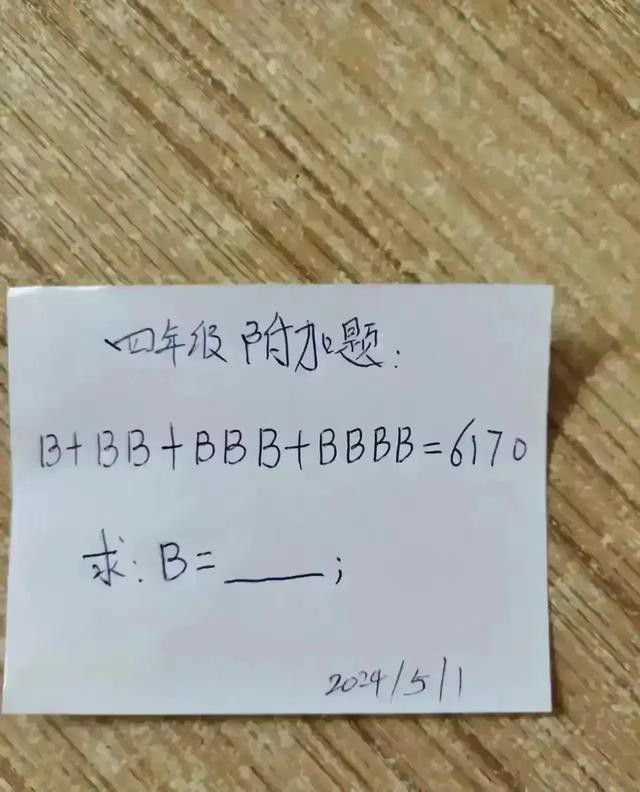 四年级附加题:
B+BB+BBB+BBBB=6170
求:B=____;
2024/5/1